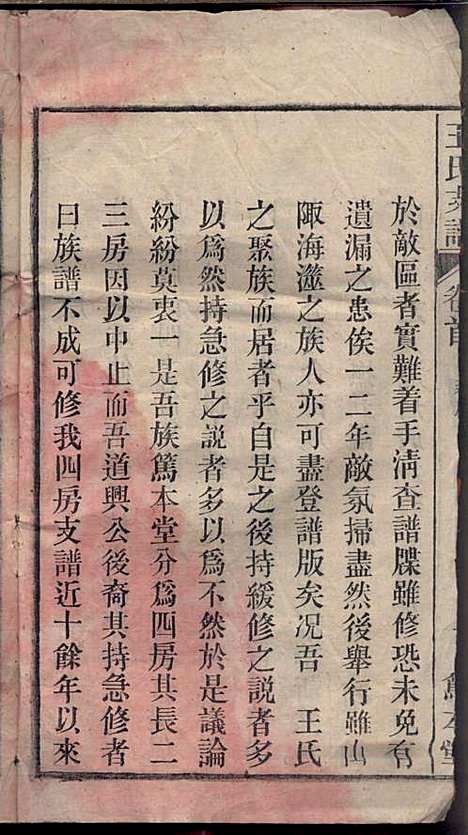 王氏支譜 卷首
篤本堂
於敵區者實難着手清查譜牒雖修恐未免有
遺漏之患俟一二年敵氛掃盡然後舉行雖山
陬海澨之族人亦可盡登譜版矣况吾 王氏
之聚族而居者乎自是之後持緩修之説者多
以爲然持急修之説者多以爲不然於是議論
紛紛莫衷一是吾族篤本堂分爲四房其長二
三房因以中止而吾道興公後裔其持急修者
曰族譜不成可修我四房支譜近十餘年以來